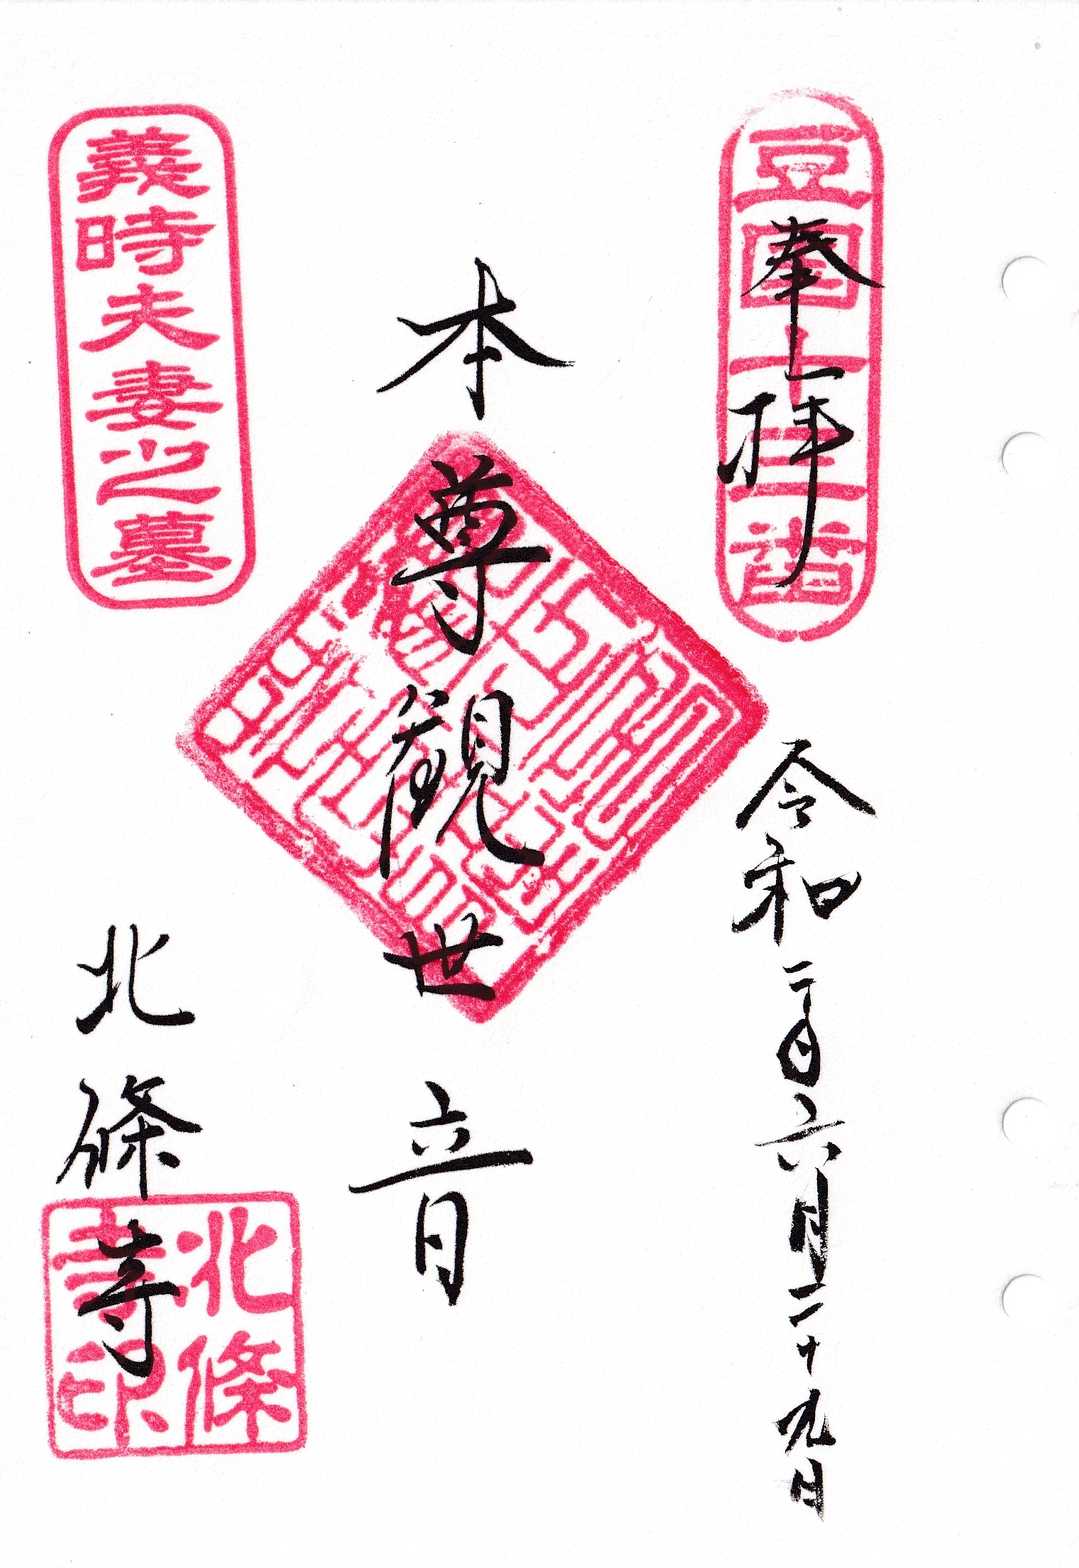 豆国十三番
奉拝
令和二年六月二十九日
本尊觀世音
義時夫妻之墓
北條寺
北條
寺印